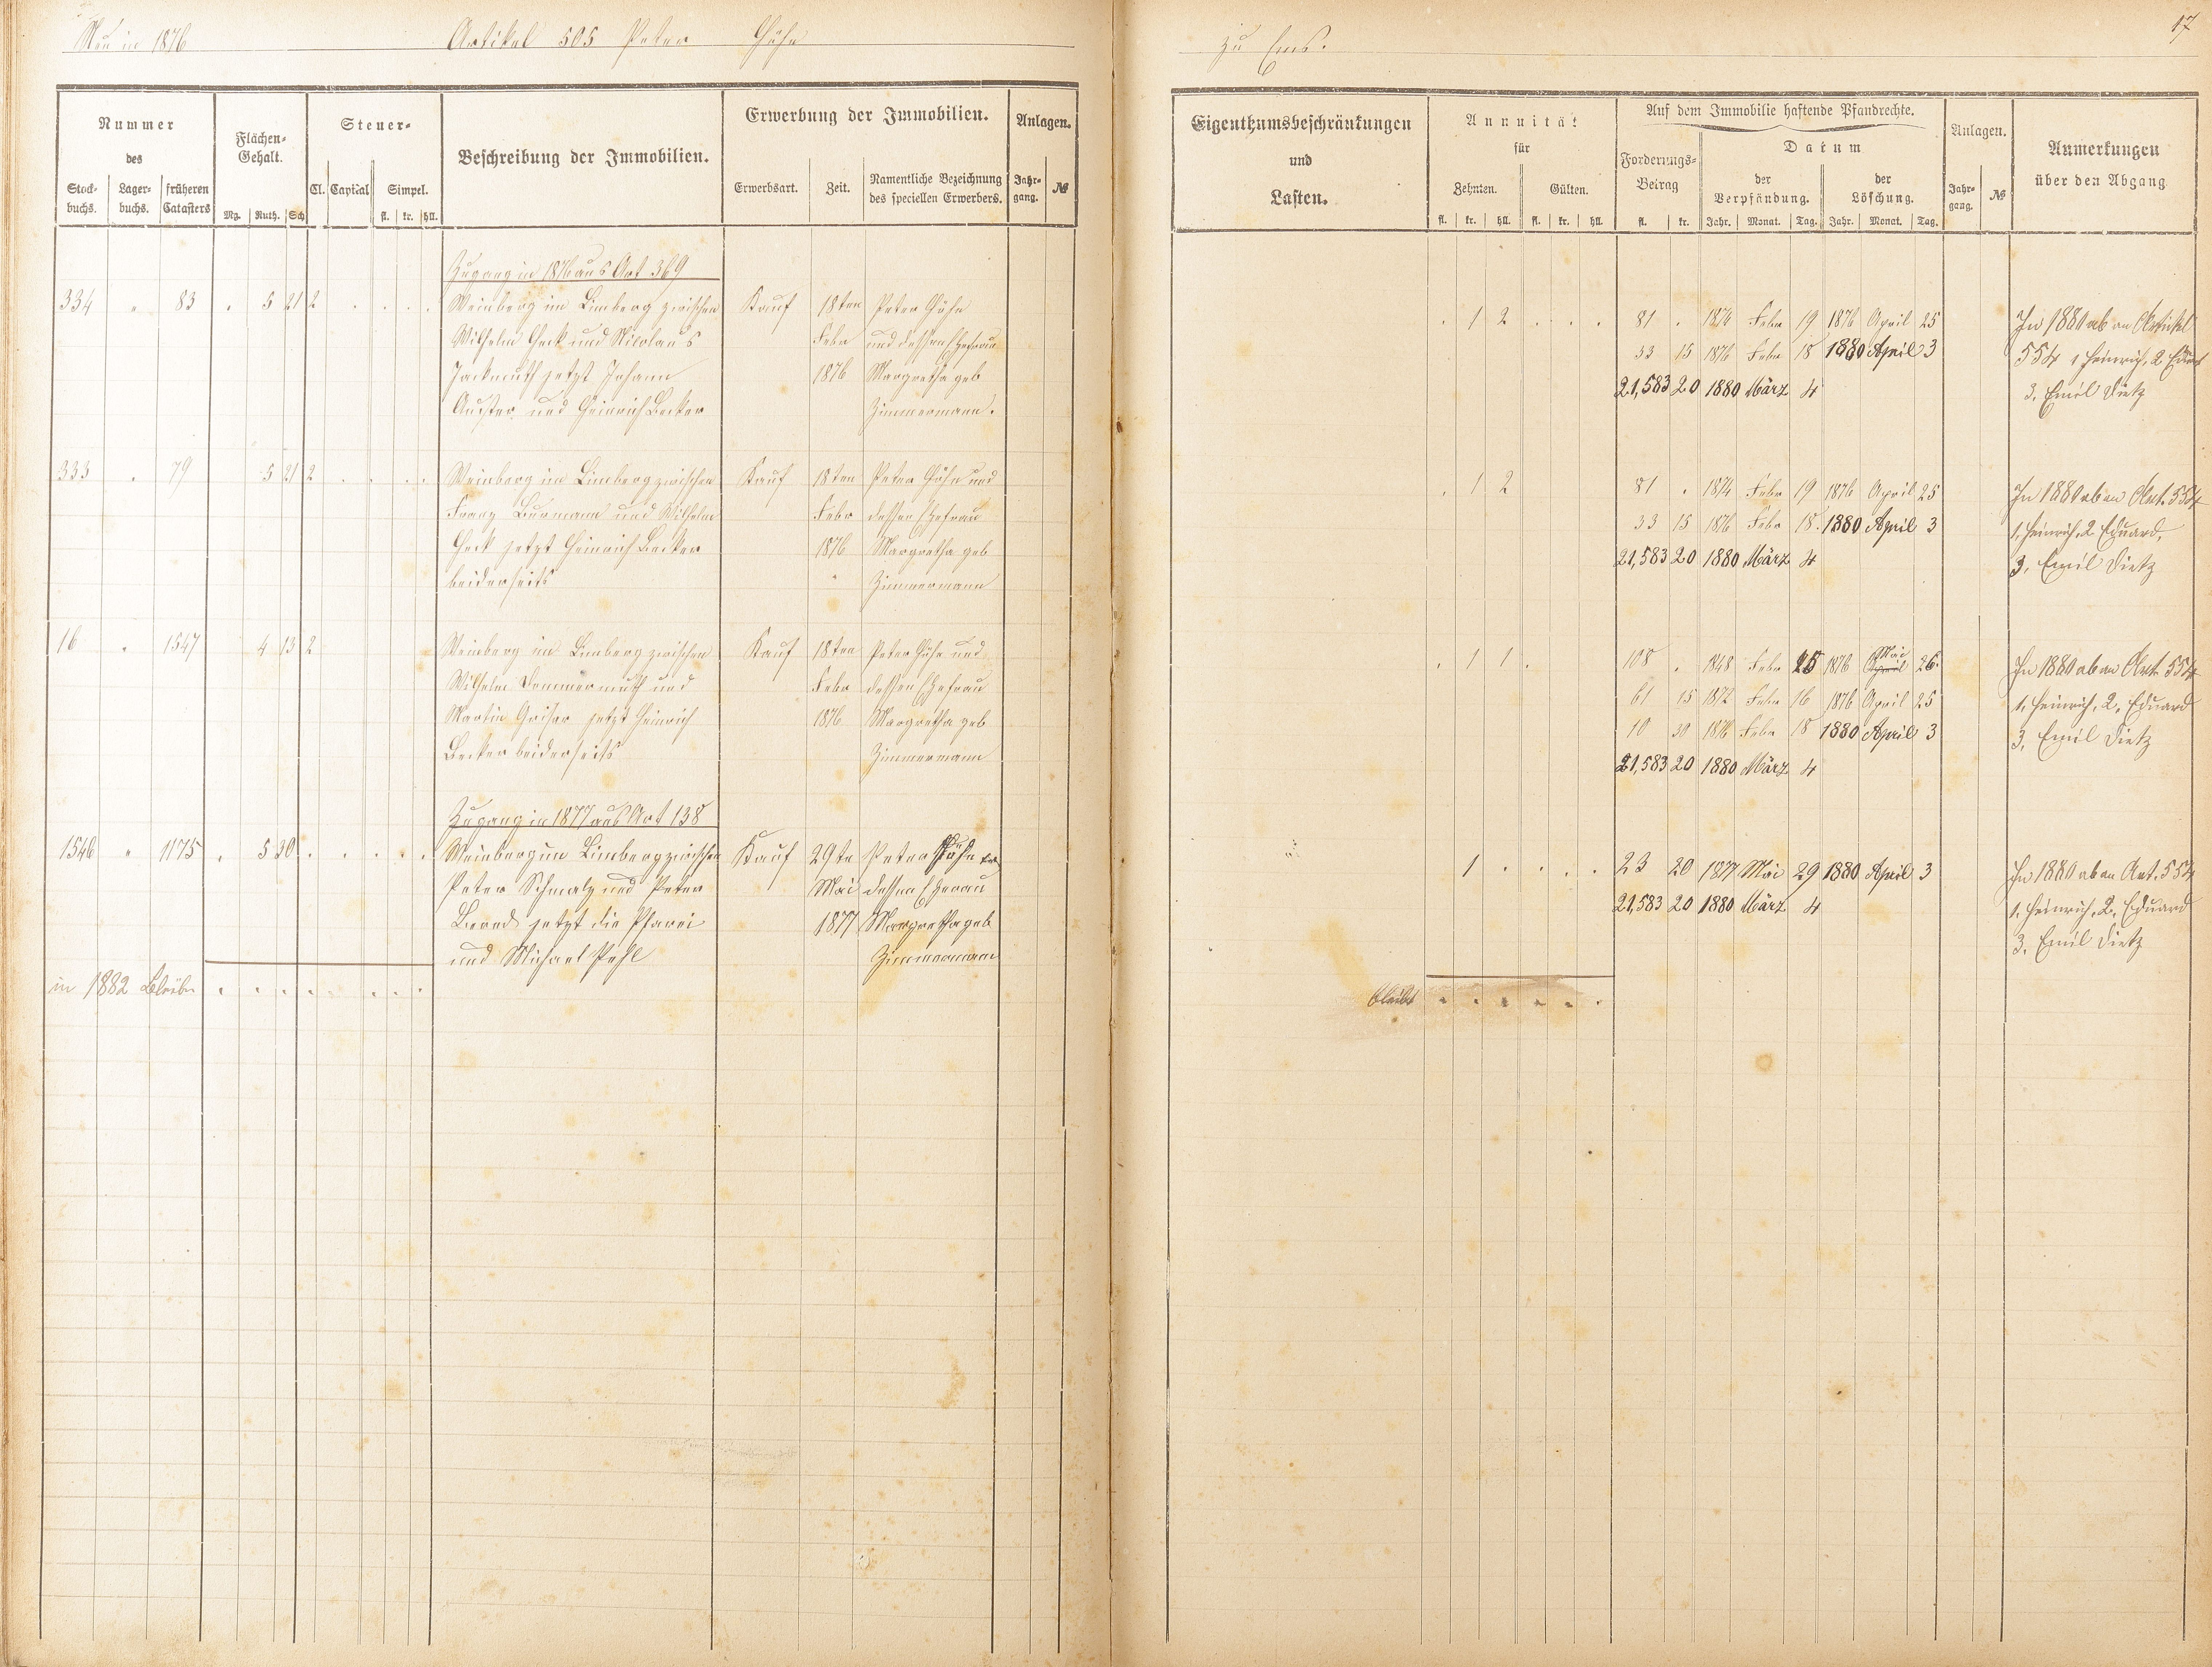 Neu in 1876 Artikel 505 Peter Höhn zu Ems. 17
Nummer des
Stock-buchs. Lager-buchs. früheren Catasters
Flächen-Gehalt.
Mg. Ruth. Sch
Steuer-
Cl. Capital Simpel.
fl. kr. hll.
Beschreibung der Immobilien.
Erwerbung der Immobilien.
Erwerbsart. Zeit. Namentliche Bezeichnung des speciellen Erwerbers.
Anlagen.
Jahr-gang. №
Eigenthumsbeschränkungen und Lasten.
Annuität für
Zehnten. Gülten.
fl. kr. hll. fl. kr. hll.
Auf dem Immobilie haftende Pfandrechte.
Forderungs-Betrag
fl. kr.
Datum
der Verpfändung. der Löschung.
Jahr. Monat. Tag. Jahr. Monat. Tag.
Anlagen.
Jahr-gang. №
Anmerkungen über den Abgang
Zugang in 1876 aus Art 369
334 " 83 . 5 21 2 . . . . Weinberg im Limberg zwischen Kauf 18ten Peter Höhn . 1 2 . . . 81 . 1874 Febr 19 1876 April 25 In 1880 ab an Artikel
Wilhelm Heck und Nicolaus Febr und dessen Ehefrau 33 15 1876 Febr 18 1880 April 3 554 1 Heinrich, 2 Eduard
jetzt Johann 1876 Margretha geb 21,583 20 1880 März 4 3. Emil Dietz
und Heinrich Becker Zimmermann.
333 . 79 5 21 2 . . . . Weinberg im Limberg zwischen Kauf 18ten Peter Höhn und . 1 2 81 . 1874 Febr 19 1876 April 25 In 1880 ab an Art. 554
Franz Burmann und Wilhelm Febr dessen Ehefrau 33 15 1876 Febr 18. 1880 April 3 1, Heinrich, 2 Eduard,
Heck jetzt Heinrich Becker 1876 Margretha geb 21,583 20 1880 März 4 3, Emil Dietz
beiderseits " Zimmermann
16 " 1547 4 13 2 Weinberg im Limberg zwischen Kauf 18ten Peter Höhn und . 1 1 . 108 . 1848 Febr 25 1876 April Mai 26. In 1880 ab an Art. 554
Wilhelm Dommermuth und Febr dessen Ehefrau 61 15 1872 Febr 16 1876 April 25 1, Heinrich, 2, Eduard
Martin jetzt Heinrich 1876 Margretha geb 10 30 1876 Febr 18 1880 April 3 3, Emil Dietz
Becker beiderseits Zimmermann 21,583 20 1880 März 4
Zugang in 1877 aus Art 138
1546 " 1175 . 5 30 . . . . . Weinberg im Limberg zwischen Kauf 29te Peter Höhn u. 1 . . . . 23 20 1877 Mai 29 1880 April 3 In 1880 ab an Art. 554
Peter Schmalz und Peter Mai dessen Eherau 21,583 20 1880 März 4 1, Heinrich, 2, Eduard
Bernd jetzt die Pfarrei 1877 Margretha geb 3. Emil Dietz
und Michael Pehl Zimmermann
in 1882 Bleibn . . . . . . . . bleibt . . . . . .